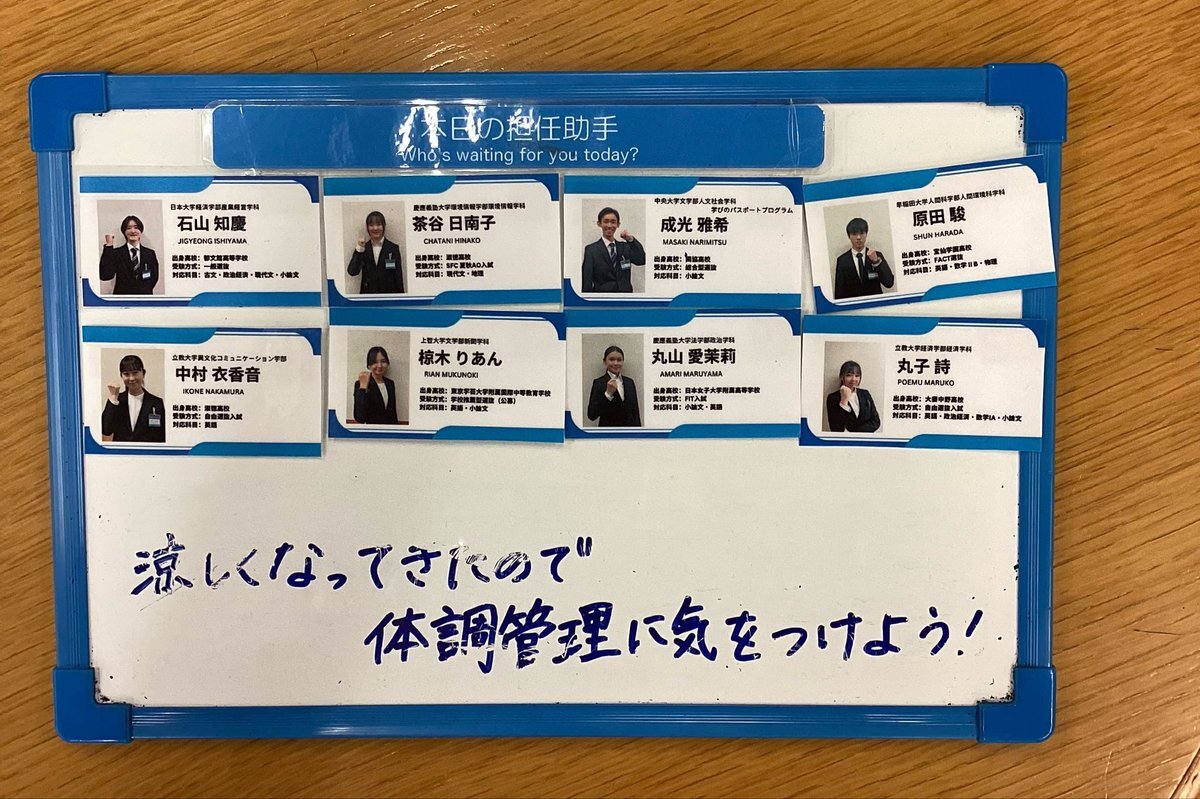 本日の担任助手
Who's waiting for you today?
日本大学経済学部産業経営学科
石山 知慶
JIGYEONG ISHIYAMA
出身高校：郁文館高等学校
受験方式：一般選抜
対応科目：古文・政治経済・現代文・小論文
慶應義塾大学環境情報学部環境情報学科
茶谷 日南子
CHATANI HINAKO
出身高校：淑徳高校
受験方式：SFC 夏秋AO入試
対応科目：現代文・地理
中央大学文学部人文社会学科
学びのパスポートプログラム
成光 雅希
MASAKI NARIMITSU
出身高校：獨協高校
受験方式：総合型選抜
対応科目：小論文
早稲田大学人間科学部人間環境科学科
原田 駿
SHUN HARADA
出身高校：宝仙学園高校
受験方式：FACT選抜
対応科目：英語・数学ⅡB・物理
立教大学異文化コミュニケーション学部
中村 衣香音
IKONE NAKAMURA
出身高校：淑徳高校
受験方式：自由選抜入試
対応科目：英語
上智大学文学部新聞学科
椋木 りあん
RIAN MUKUNOKI
出身高校：東京学芸大学附属国際中等教育学校
受験方式：学校推薦型選抜（公募）
対応科目：英語・小論文
慶應義塾大学法学部政治学科
丸山 愛茉莉
AMARI MARUYAMA
出身高校：日本女子大学附属高等学校
受験方式：FIT入試
対応科目：小論文・英語
立教大学経済学部経済学科
丸子 詩
POEMU MARUKO
出身高校：大妻中野高校
受験方式：自由選抜入試
対応科目：英語・政治経済・数学IA・小論文
涼しくなってきたので
体調管理に気をつけよう！